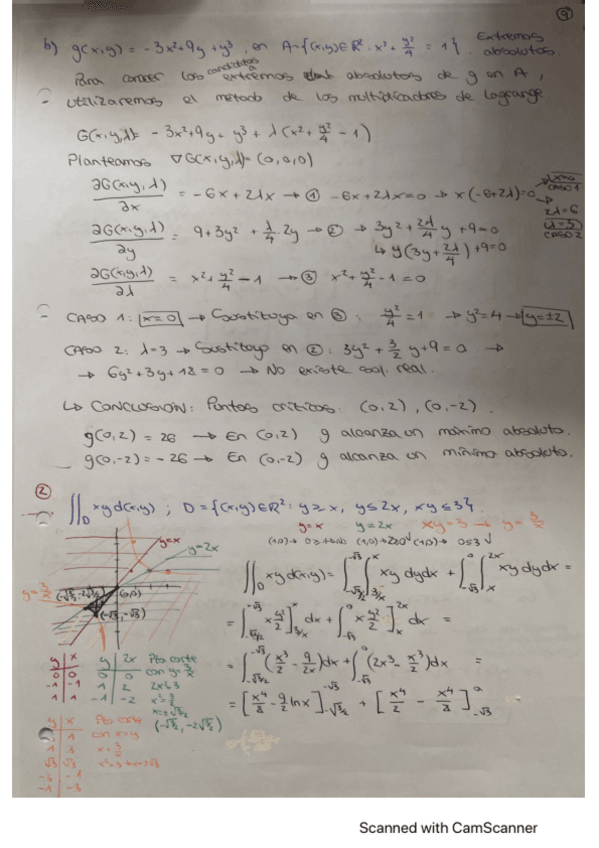 9
b) g(x,y) = -3x²+9y+y³, en A={(x,y)∈ℝ²: x²+y²/4 = 1}. Extremos absolutos.
Para conocer los candidatos a extremos absolutos de g en A,
- utilizaremos el método de los multiplicadores de Lagrange
G(x,y,λ)= -3x²+9y+y³+λ(x²+y²/4-1)
Planteamos ∇G(x,y,λ)=(0,0,0)
∂G(x,y,λ)/∂x = -6x+2λx → ① -6x+2λx=0 → x(-6+2λ)=0 → x=0 CASO 1
2λ=6 λ=3 CASO 2
∂G(x,y,λ)/∂y = 9+3y²+λ/4·2y → ② → 3y²+2λ/4 y+9=0
↳ y(3y+2λ/4)+9=0
∂G(x,y,λ)/∂λ = x²+y²/4-1 → ③ x²+y²/4-1=0
- CASO 1: x=0 → Sustituyo en ③: y²/4=1 → y²=4 → y=±2
CASO 2: λ=3 → Sustituyo en ②: 3y²+3/2 y+9=0 →
→ 6y²+3y+18=0 → No existe sol. real.
↳ CONCLUSIÓN: Puntos críticos: (0,2), (0,-2).
g(0,2)=26 → En (0,2) g alcanza un máximo absoluto.
g(0,-2)=-26 → En (0,-2) g alcanza un mínimo absoluto.
② ∬_D xy d(x,y) ; D={(x,y)∈ℝ²: y≥x, y≤2x, xy≤3}.
y=x y=2x xy=3 → y=3/x
y=x
y=2x
y=3/x
(0,0)
(-√3,-√3)
∬_D xy d(x,y) = ∫∫ xy dydx + ∫∫ xy dydx =
= ∫ x y²/2] dx + ∫ x y²/2] dx =
= ∫(x³/2 - 9/2x)dx + ∫(2x³ - x³/2)dx =
= [x⁴/8 - 9/2 lnx] + [x⁴/2 - x⁴/8]
y x
0 0
-1 -1
1 1
y 2x
0 0
1 2
-1 -2
Pto corte con y=3/x
2x²=3
x²=3/2
(-√3/2, -2√3/2)
y x
1 3
√3 √3
-3 -1
-1 -3
Pto corte con x=y
x=3/x
Scanned with CamScanner